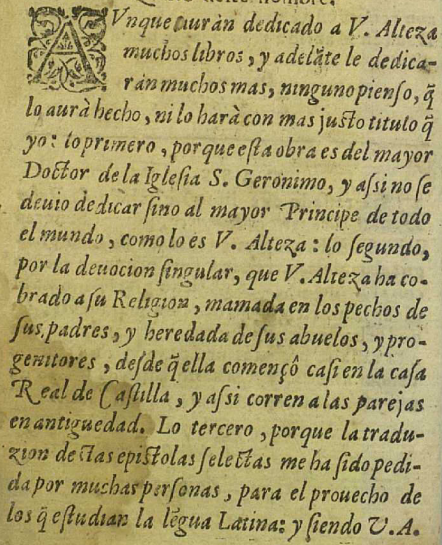 AVnque auràn dedicado a V. Alteza
muchos libros, y adelãte le dedica-
ràn muchos mas, ninguno pienso, q̃
lo aurà hecho, ni lo harà con mas justo titulo q̃
yo: lo primero, porque esta obra es del mayor
Doctor de la Iglesia S. Geronimo, y assi no se
deuio dedicar sino al mayor Principe de todo
el mundo, como lo es V. Alteza: lo segundo,
por la deuocion singular, que V. Alteza ha co-
brado a su Religion, mamada en los pechos de
sus padres, y heredada de sus abuelos, y pro-
genitores, desde q̃ ella començô casi en la casa
Real de Castilla, y assi corren a las parejas
en antiguedad. Lo tercero, porque la tradu-
zion de estas epistolas selectas me ha sido pedi-
da por muchas personas, para el prouecho de
los q̃ estudian la lẽgua Latina: y siendo V. A.